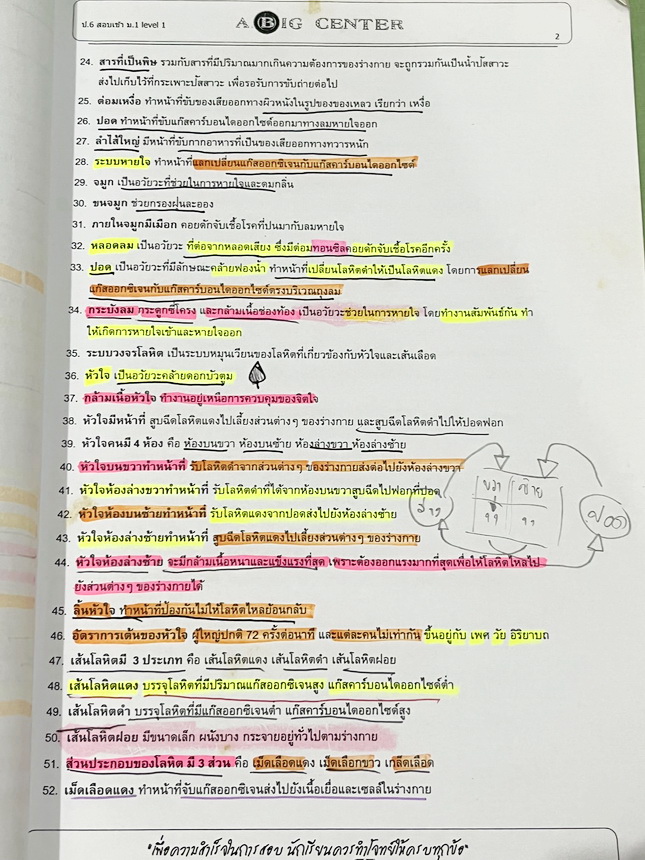 ป.6 สอบเข้า ม.1 level 1
A BIG CENTER
2
24. สารที่เป็นพิษ รวมกับสารที่มีปริมาณมากเกินความต้องการของร่างกาย จะถูกรวมกันเป็นน้ำปัสสาวะ
ส่งไปเก็บไว้ที่กระเพาะปัสสาวะ เพื่อรอรับการขับถ่ายต่อไป
25. ต่อมเหงื่อ ทำหน้าที่ขับของเสียออกทางผิวหนังในรูปของของเหลว เรียกว่า เหงื่อ
26. ปอด ทำหน้าที่ขับแก๊สคาร์บอนไดออกไซด์ออกมาทางลมหายใจออก
27. ลำไส้ใหญ่ มีหน้าที่ขับกากอาหารที่เป็นของเสียออกทางทวารหนัก
28. ระบบหายใจ ทำหน้าที่แลกเปลี่ยนแก๊สออกซิเจนกับแก๊สคาร์บอนไดออกไซด์
29. จมูก เป็นอวัยวะที่ช่วยในการหายใจและดมกลิ่น
30. ขนจมูก ช่วยกรองฝุ่นละออง
31. ภายในจมูกมีเมือก คอยดักจับเชื้อโรคที่ปนมากับลมหายใจ
32. หลอดลม เป็นอวัยวะ ที่ต่อจากหลอดเสียง ซึ่งมีต่อมทอนซิลคอยดักจับเชื้อโรคอีกครั้ง
33. ปอด เป็นอวัยวะที่มีลักษณะคล้ายฟองน้ำ ทำหน้าที่เปลี่ยนโลหิตดำให้เป็นโลหิตแดง โดยการแลกเปลี่ยน
แก๊สออกซิเจนกับแก๊สคาร์บอนไดออกไซด์ตรงบริเวณถุงลม
34. กระบังลม กระดูกซี่โครง และกล้ามเนื้อช่องท้อง เป็นอวัยวะช่วยในการหายใจ โดยทำงานสัมพันธ์กัน ทำ
ให้เกิดการหายใจเข้าและหายใจออก
35. ระบบวงจรโลหิต เป็นระบบหมุนเวียนของโลหิตที่เกี่ยวข้องกับหัวใจและเส้นเลือด
36. หัวใจ เป็นอวัยวะคล้ายดอกบัวตูม
37. กล้ามเนื้อหัวใจ ทำงานอยู่เหนือการควบคุมของจิตใจ
38. หัวใจมีหน้าที่ สูบฉีดโลหิตแดงไปเลี้ยงส่วนต่างๆ ของร่างกาย และสูบฉีดโลหิตดำไปให้ปอดฟอก
39. หัวใจคนมี 4 ห้อง คือ ห้องบนขวา ห้องบนซ้าย ห้องล่างขวา ห้องล่างซ้าย
40. หัวใจบนขวาทำหน้าที่ รับโลหิตดำจากส่วนต่างๆ ของร่างกายส่งต่อไปยังห้องล่างขวา
41. หัวใจห้องล่างขวาทำหน้าที่ รับโลหิตดำที่ได้จากห้องบนขวาสูบฉีดไปฟอกที่ปอด
ขวา ซ้าย
ปอด
42. หัวใจห้องบนซ้ายทำหน้าที่ รับโลหิตแดงจากปอดส่งไปยังห้องล่างซ้าย
43. หัวใจห้องล่างซ้ายทำหน้าที่ สูบฉีดโลหิตแดงไปเลี้ยงส่วนต่างๆ ของร่างกาย
44. หัวใจห้องล่างซ้าย จะมีกล้ามเนื้อหนาและแข็งแรงที่สุด เพราะต้องออกแรงมากที่สุดเพื่อให้โลหิตไหลไป
ยังส่วนต่างๆ ของร่างกายได้
45. ลิ้นหัวใจ ทำหน้าที่ป้องกันไม่ให้โลหิตไหลย้อนกลับ
46. อัตราการเต้นของหัวใจ ผู้ใหญ่ปกติ 72 ครั้งต่อนาที และแต่ละคนไม่เท่ากัน ขึ้นอยู่กับ เพศ วัย อิริยาบถ
47. เส้นโลหิตมี 3 ประเภท คือ เส้นโลหิตแดง เส้นโลหิตดำ เส้นโลหิตฝอย
48. เส้นโลหิตแดง บรรจุโลหิตที่มีปริมาณแก๊สออกซิเจนสูง แก๊สคาร์บอนไดออกไซด์ต่ำ
49. เส้นโลหิตดำ บรรจุโลหิตที่มีแก๊สออกซิเจนต่ำ แก๊สคาร์บอนไดออกไซด์สูง
50. เส้นโลหิตฝอย มีขนาดเล็ก ผนังบาง กระจายอยู่ทั่วไปตามร่างกาย
51. ส่วนประกอบของโลหิต มี 3 ส่วน คือ เม็ดเลือดแดง เม็ดเลือกขาว เกล็ดเลือด
52. เม็ดเลือดแดง ทำหน้าที่จับแก๊สออกซิเจนส่งไปยังเนื้อเยื่อและเซลล์ในร่างกาย
"เพื่อความสำเร็จในการสอบ นักเรียนควรทำโจทย์ให้ครบทุกข้อ"